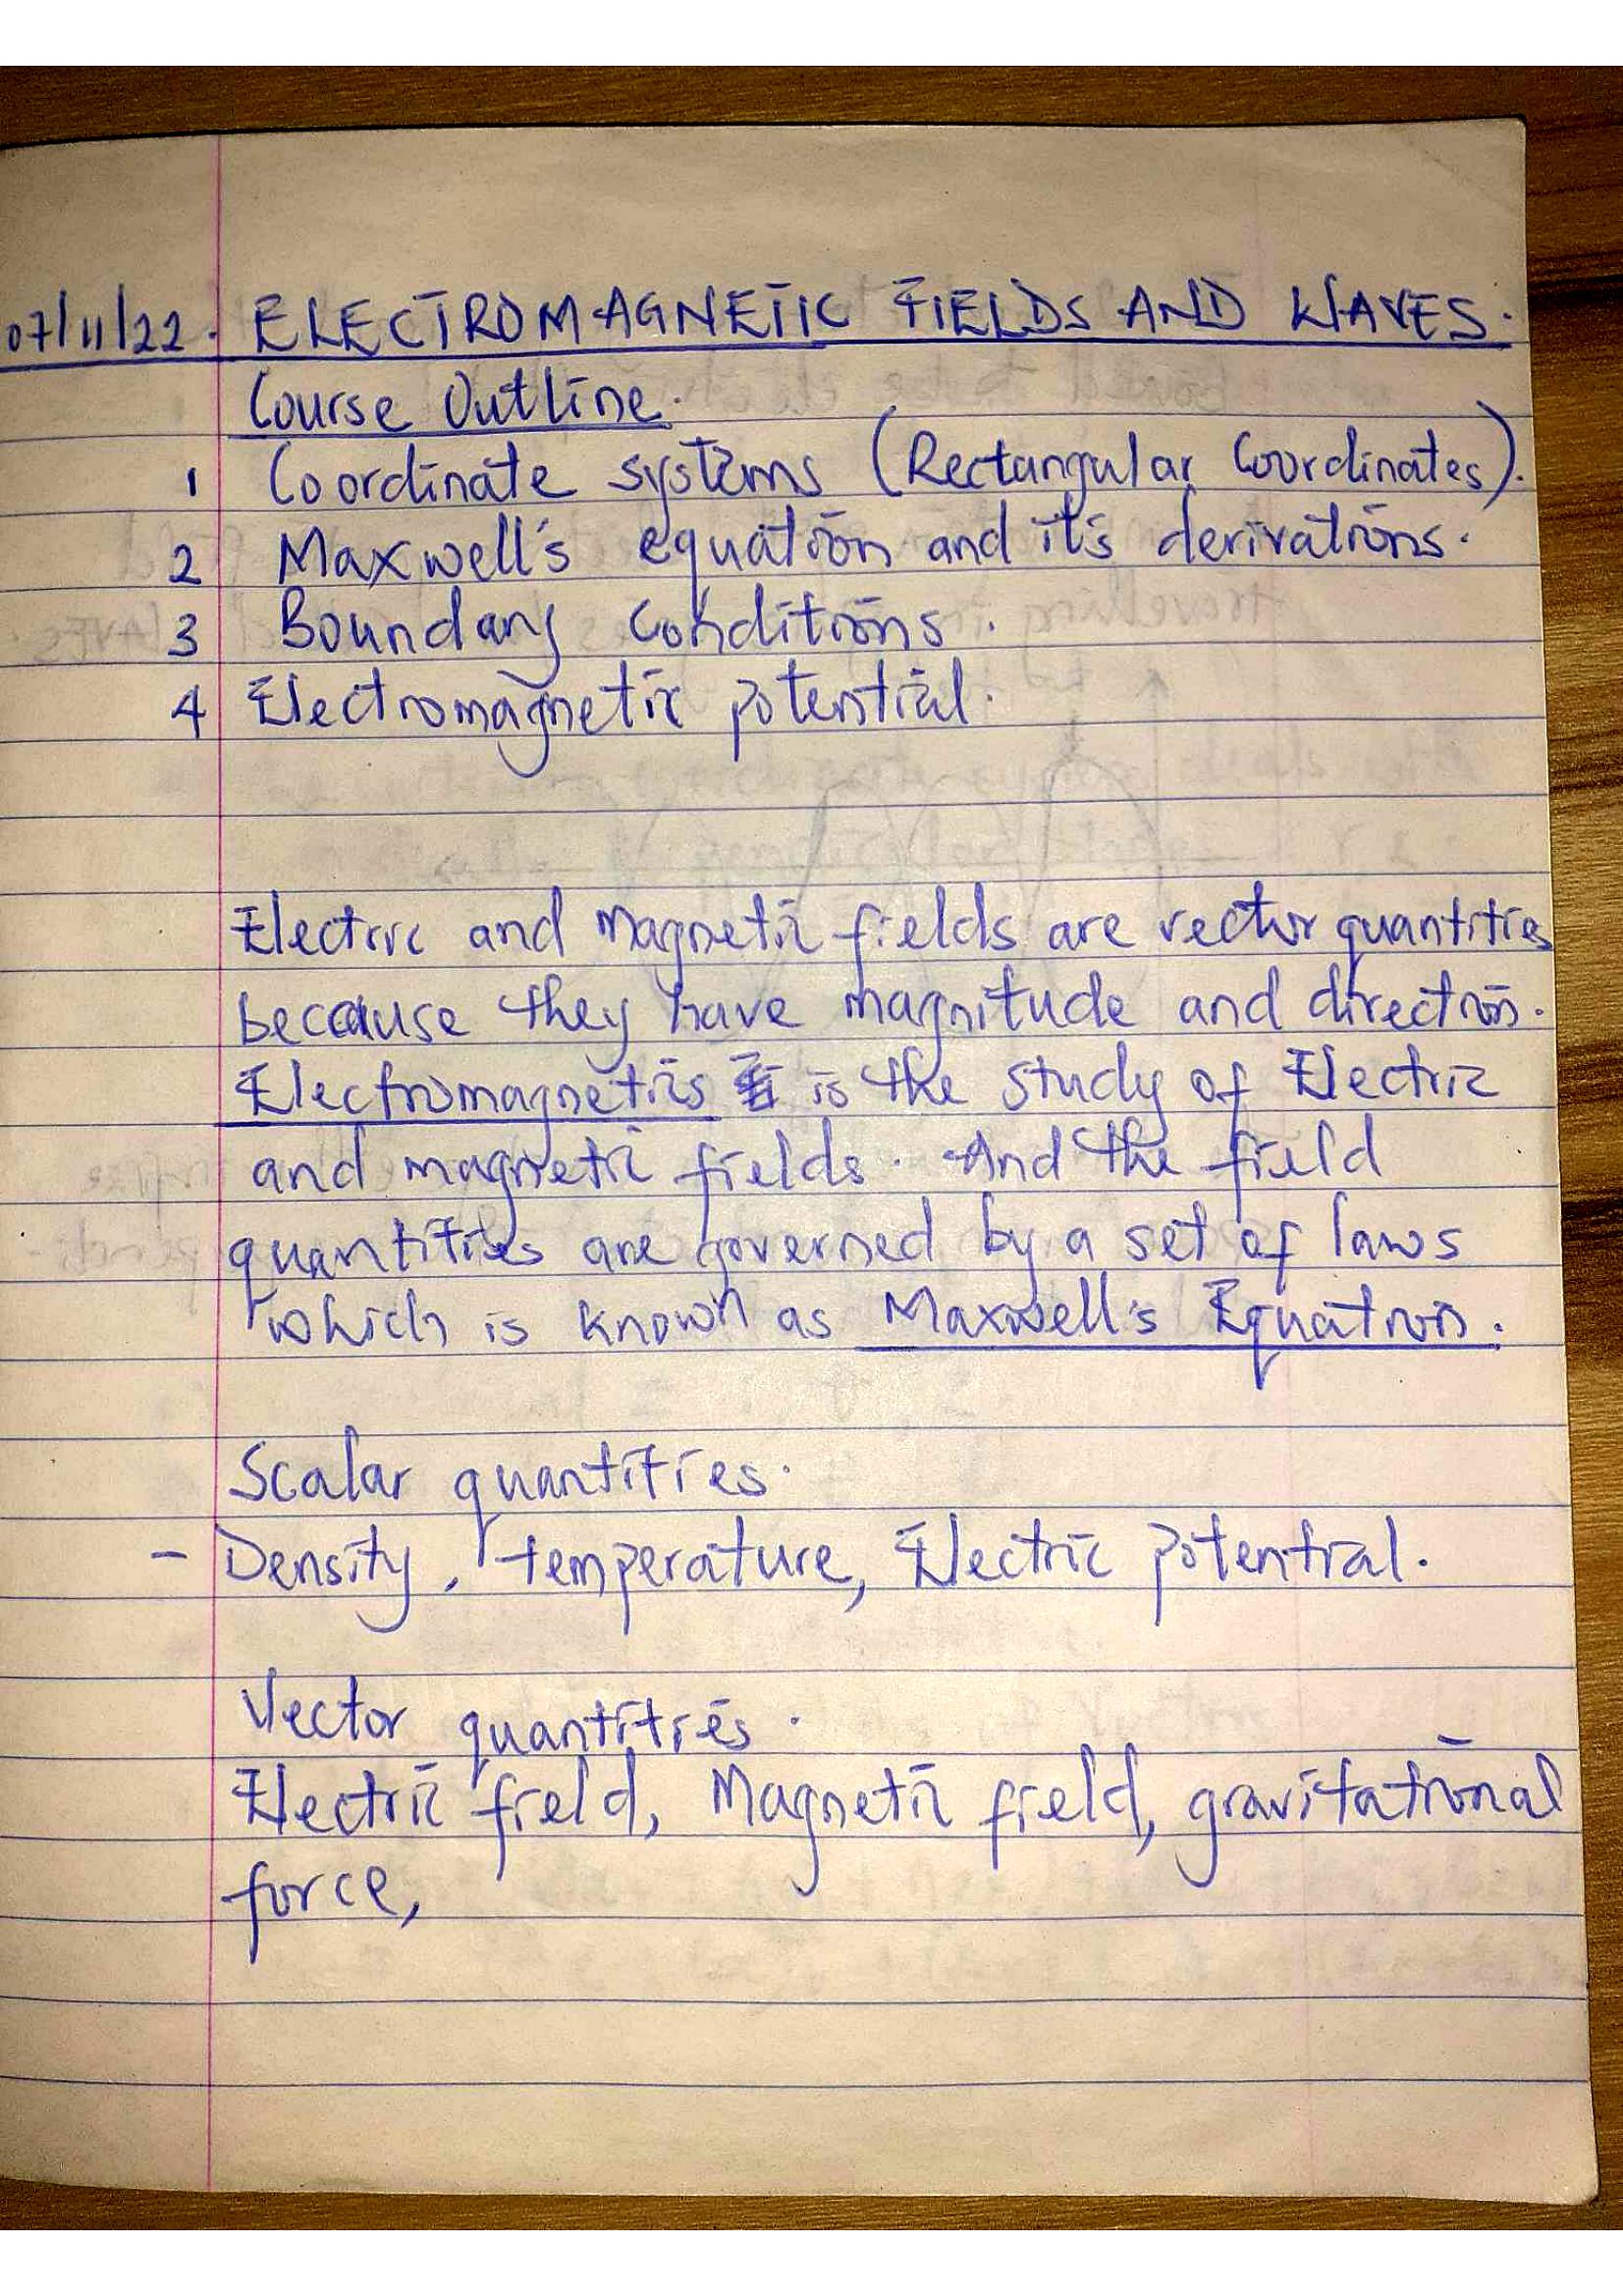 07/11/22. ELECTROMAGNETIC FIELDS AND WAVES.
Course Outline.
1 Coordinate systems (Rectangular Coordinates).
2 Maxwell's equation and it's derivations.
3 Boundary Conditions.
4 Electromagnetic potential.
Electric and Magnetic fields are vector quantities
because they have magnitude and direction.
Electromagnetics is the study of Electric
and magnetic fields. And the field
quantities are governed by a set of laws
which is known as Maxwell's Equation.
Scalar quantities.
- Density, temperature, Electric potential.
Vector quantities.
Electric field, Magnetic field, gravitational
force,